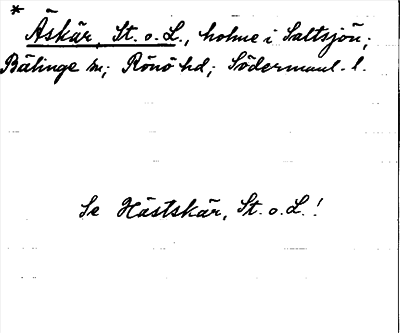 *
Äskär, St. o. L., holme i Saltsjön;
Bälinge sn; Rönö hd; Södermanl. l.
Se Hästskär, St. o. L.!